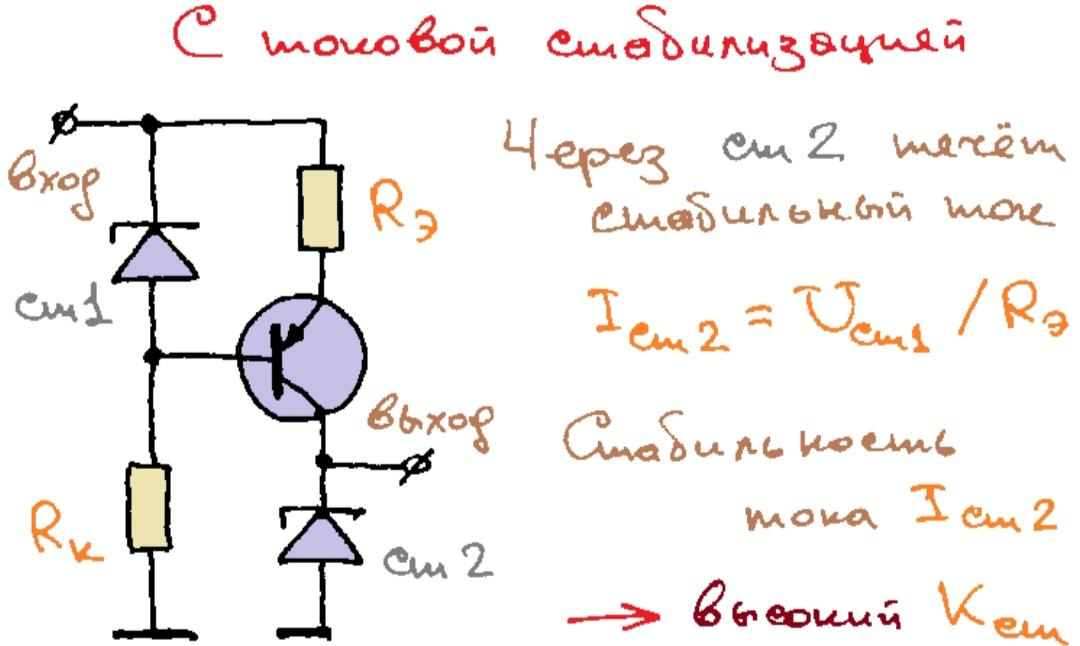 С токовой стабилизацией
вход
Rэ
ст1
Rк
выход
ст2
Через ст2 течёт
стабильный ток
Iст2 = Uст1 / Rэ
Стабильность
тока Iст2
→ высокий Kст